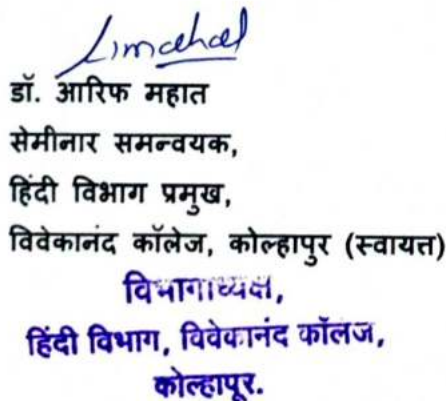 डॉ. आरिफ महात
सेमीनार समन्वयक,
हिंदी विभाग प्रमुख,
विवेकानंद कॉलेज, कोल्हापुर (स्वायत्त)
विभागाध्यक्ष,
हिंदी विभाग, विवेकानंद कॉलज,
कोल्हापूर.